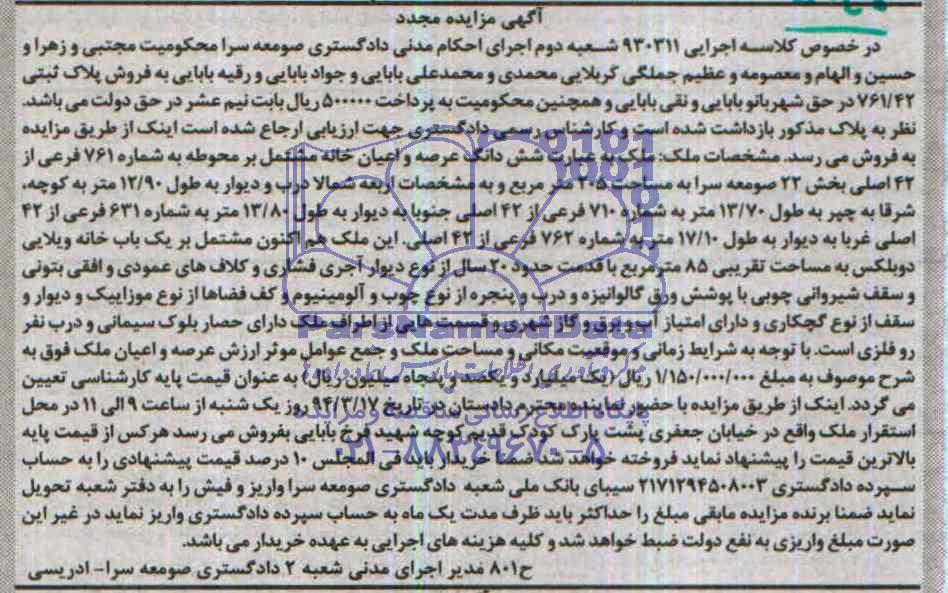 آگهی مزایده مجدد
در خصوص کلاسه اجرایی ۹۳۰۳۱۱ شعبه دوم اجرای احکام مدنی دادگستری صومعه سرا محکومیت مجتبی و زهرا و
حسین و الهام و معصومه و عظیم جملگی کربلایی محمدی و محمدعلی بابایی و جواد بابایی و رقیه بابایی به فروش پلاک ثبتی
۷۶۱/۴۲ در حق شهربانو بابایی و نقی بابایی و همچنین محکومیت به پرداخت ۵۰۰۰۰۰ ریال بابت نیم عشر در حق دولت می باشد.
نظر به پلاک مذکور بازداشت شده است و کارشناس رسمی دادگستری جهت ارزیابی ارجاع شده است اینک از طریق مزایده
به فروش می رسد. مشخصات ملک: ملک به عبارت شش دانگ عرصه و اعیان خانه مشتمل بر محوطه به شماره ۷۶۱ فرعی از
۴۲ اصلی بخش ۲۲ صومعه سرا به مساحت ۲۰۵ متر مربع و به مشخصات اربعه شمالا درب و دیوار به طول ۱۲/۹۰ متر به کوچه،
شرقا به چپر به طول ۱۳/۷۰ متر به شماره ۷۱۰ فرعی از ۴۲ اصلی جنوبا به دیوار به طول ۱۳/۸۰ متر به شماره ۶۳۱ فرعی از ۴۲
اصلی غربا به دیوار به طول ۱۷/۱۰ متر به شماره ۷۶۲ فرعی از ۴۲ اصلی. این ملک هم اکنون مشتمل بر یک باب خانه ویلایی
دوبلکس به مساحت تقریبی ۸۵ مترمربع با قدمت حدود ۲۰ سال از نوع دیوار آجری فشاری و کلاف های عمودی و افقی بتونی
و سقف شیروانی چوبی با پوشش ورق گالوانیزه و درب و پنجره از نوع چوب و آلومینیوم و کف فضاها از نوع موزاییک و دیوار و
سقف از نوع گچکاری و دارای امتیاز آب و برق و گاز شهری و قسمت هایی از اطراف ملک دارای حصار بلوک سیمانی و درب نفر
رو فلزی است. با توجه به شرایط زمانی و موقعیت مکانی و مساحت ملک و جمع عوامل موثر ارزش عرصه و اعیان ملک فوق به
شرح موصوف به مبلغ ۱/۱۵۰/۰۰۰/۰۰۰ ریال (یک میلیارد و یکصد و پنجاه میلیون ریال) به عنوان قیمت پایه کارشناسی تعیین
می گردد. اینک از طریق مزایده با حضور نماینده محترم دادستان در تاریخ ۹۴/۳/۱۷ روز یک شنبه از ساعت ۹ الی ۱۱ در محل
استقرار ملک واقع در خیابان جعفری پشت پارک کودک قدیم کوچه شهید فرج بابایی بفروش می رسد هرکس از قیمت پایه
بالاترین قیمت را پیشنهاد نماید فروخته خواهد شد ضمنا خریدار باید فی المجلس ۱۰ درصد قیمت پیشنهادی را به حساب
سپرده دادگستری ۲۱۷۱۲۹۴۵۰۸۰۰۳ سیبای بانک ملی شعبه دادگستری صومعه سرا واریز و فیش را به دفتر شعبه تحویل
نماید ضمنا برنده مزایده مابقی مبلغ را حداکثر باید ظرف مدت یک ماه به حساب سپرده دادگستری واریز نماید در غیر این
صورت مبلغ واریزی به نفع دولت ضبط خواهد شد و کلیه هزینه های اجرایی به عهده خریدار می باشد.
ح۸۰۱ مدیر اجرای مدنی شعبه ۲ دادگستری صومعه سرا- ادریسی
ParsNamadData
پایگاه اطلاع رسانی مناقصه و مزایده
۰۲۱-۸۸۳۴۹۶۷۰-۵